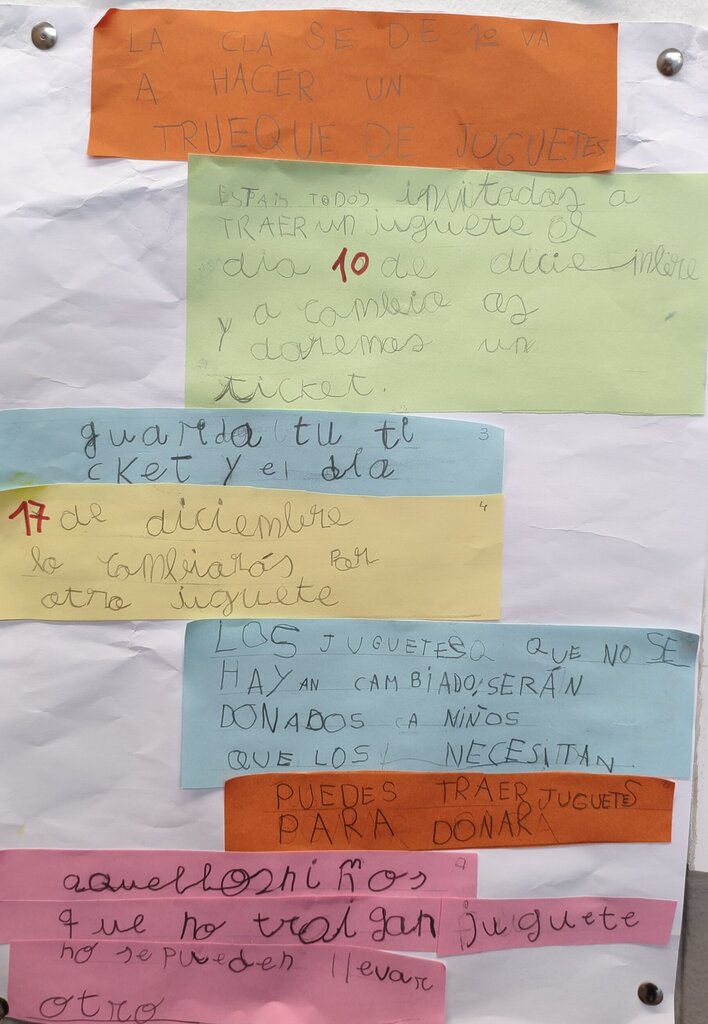 LA CLASE DE 1º VA
A HACER UN
TRUEQUE DE JUGUETES
ESTAIS TODOS invitados a
TRAER un juguete el
día 10 de diciembre
y a cambio os
daremos un
ticket.
guarda tu ti 3
cket y el día
17 de diciembre 4
lo cambiarás por
otro juguete
LOS JUGUETES QUE NO SE
HAYAN CAMBIADO, SERÁN
DONADOS A NIÑOS
QUE LOS NECESITAN.
PUEDES TRAER JUGUETES
PARA DONAR
aquellos niños
que no traigan juguete
no se pueden llevar
otro